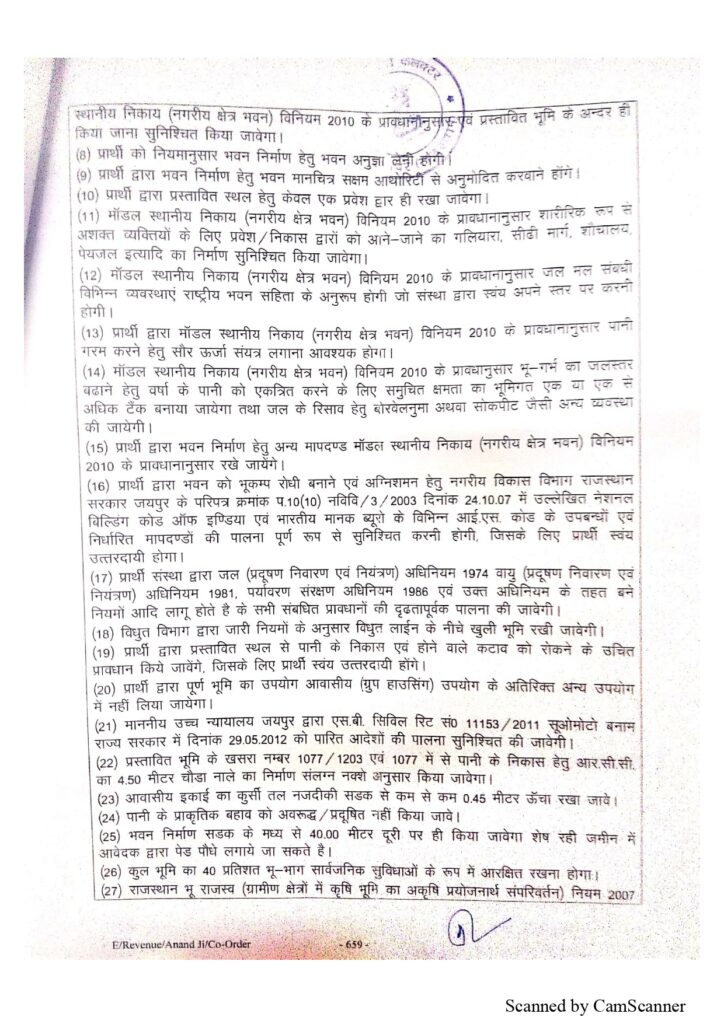 कलक्टर
स्थानीय निकाय (नगरीय क्षेत्र भवन) विनियम 2010 के प्रावधानानुसार एवं प्रस्तावित भूमि के अन्दर ही
किया जाना सुनिश्चित किया जावेगा।
(8) प्रार्थी को नियमानुसार भवन निर्माण हेतु भवन अनुज्ञा लेनी होगी।
(9) प्रार्थी द्वारा भवन निर्माण हेतु भवन मानचित्र सक्षम आथोरिटी से अनुमोदित करवाने होंगे।
(10) प्रार्थी द्वारा प्रस्तावित स्थल हेतु केवल एक प्रवेश द्वार ही रखा जावेगा।
(11) मॉडल स्थानीय निकाय (नगरीय क्षेत्र भवन) विनियम 2010 के प्रावधानानुसार शारीरिक रूप से
अशक्त व्यक्तियों के लिए प्रवेश/निकास द्वारों को आने-जाने का गलियारा, सीढी मार्ग, शौचालय,
पेयजल इत्यादि का निर्माण सुनिश्चित किया जावेगा।
(12) मॉडल स्थानीय निकाय (नगरीय क्षेत्र भवन) विनियम 2010 के प्रावधानानुसार जल मल संबधी
विभिन्न व्यवस्थाएं राष्ट्रीय भवन संहिता के अनुरूप होगी जो संस्था द्वारा स्वंय अपने स्तर पर करनी
होगी।
(13) प्रार्थी द्वारा मॉडल स्थानीय निकाय (नगरीय क्षेत्र भवन) विनियम 2010 के प्रावधानानुसार पानी
गरम करने हेतु सौर ऊर्जा संयत्र लगाना आवश्यक होगा।
(14) मॉडल स्थानीय निकाय (नगरीय क्षेत्र भवन) विनियम 2010 के प्रावधानानुसार भू-गर्भ का जलस्तर
बढाने हेतु वर्षा के पानी को एकत्रित करने के लिए समुचित क्षमता का भूमिगत एक या एक से
अधिक टैंक बनाया जायेगा तथा जल के रिसाव हेतु बोरवेलनुमा अथवा सोकपीट जैसी अन्य व्यवस्था
की जायेगी।
(15) प्रार्थी द्वारा भवन निर्माण हेतु अन्य मापदण्ड मॉडल स्थानीय निकाय (नगरीय क्षेत्र भवन) विनियम
2010 के प्रावधानानुसार रखे जायेंगे।
(16) प्रार्थी द्वारा भवन को भूकम्प रोधी बनाने एवं अग्निशमन हेतु नगरीय विकास विभाग राजस्थान
सरकार जयपुर के परिपत्र क्रमांक प.10(10) नविवि/3/2003 दिनांक 24.10.07 में उल्लेखित नेशनल
बिल्डिंग कोड ऑफ इण्डिया एवं भारतीय मानक ब्यूरो के विभिन्न आई.एस. कोड के उपबन्धों एवं
निर्धारित मापदण्डों की पालना पूर्ण रूप से सुनिश्चित करनी होगी, जिसके लिए प्रार्थी स्वंय
उत्तरदायी होगा।
(17) प्रार्थी संस्था द्वारा जल (प्रदूषण निवारण एवं नियंत्रण) अधिनियम 1974 वायु (प्रदूषण निवारण एवं
नियंत्रण) अधिनियम 1981, पर्यावरण संरक्षण अधिनियम 1986 एवं उक्त अधिनियम के तहत बने
नियमों आदि लागू होते है के सभी संबधित प्रावधानों की दृढतापूर्वक पालना की जावेगी।
(18) विधुत विभाग द्वारा जारी नियमों के अनुसार विधुत लाईन के नीचे खुली भूमि रखी जावेगी।
(19) प्रार्थी द्वारा प्रस्तावित स्थल से पानी के निकास एवं होने वाले कटाव को रोकने के उचित
प्रावधान किये जावेंगे, जिसके लिए प्रार्थी स्वंय उत्तरदायी होंगे।
(20) प्रार्थी द्वारा पूर्ण भूमि का उपयोग आवासीय (ग्रुप हाउसिंग) उपयोग के अतिरिक्त अन्य उपयोग
में नहीं लिया जायेगा।
(21) माननीय उच्च न्यायालय जयपुर द्वारा एस.बी. सिविल रिट सं0 11153/2011 सूओमोटो बनाम
राज्य सरकार में दिनांक 29.05.2012 को पारित आदेशों की पालना सुनिश्चित की जावेगी।
(22) प्रस्तावित भूमि के खसरा नम्बर 1077/1203 एवं 1077 में से पानी के निकास हेतु आर.सी.सी.
का 4.50 मीटर चौडा नाले का निर्माण संलग्न नक्शे अनुसार किया जावेगा।
(23) आवासीय इकाई का कुर्सी तल नजदीकी सडक से कम से कम 0.45 मीटर ऊँचा रखा जावे।
(24) पानी के प्राकृतिक बहाव को अवरूद्ध/प्रदूषित नहीं किया जावे।
(25) भवन निर्माण सडक के मध्य से 40.00 मीटर दूरी पर ही किया जावेगा शेष रही जमीन में
आवेदक द्वारा पेड पौधे लगाये जा सकते है।
(26) कुल भूमि का 40 प्रतिशत भू-भाग सार्वजनिक सुविधाओं के रूप में आरक्षित रखना होगा।
(27) राजस्थान भू राजस्व (ग्रामीण क्षेत्रों में कृषि भूमि का अकृषि प्रयोजनार्थ संपरिवर्तन) नियम 2007
E/Revenue/Anand Ji/Co-Order - 659 -
Scanned by CamScanner